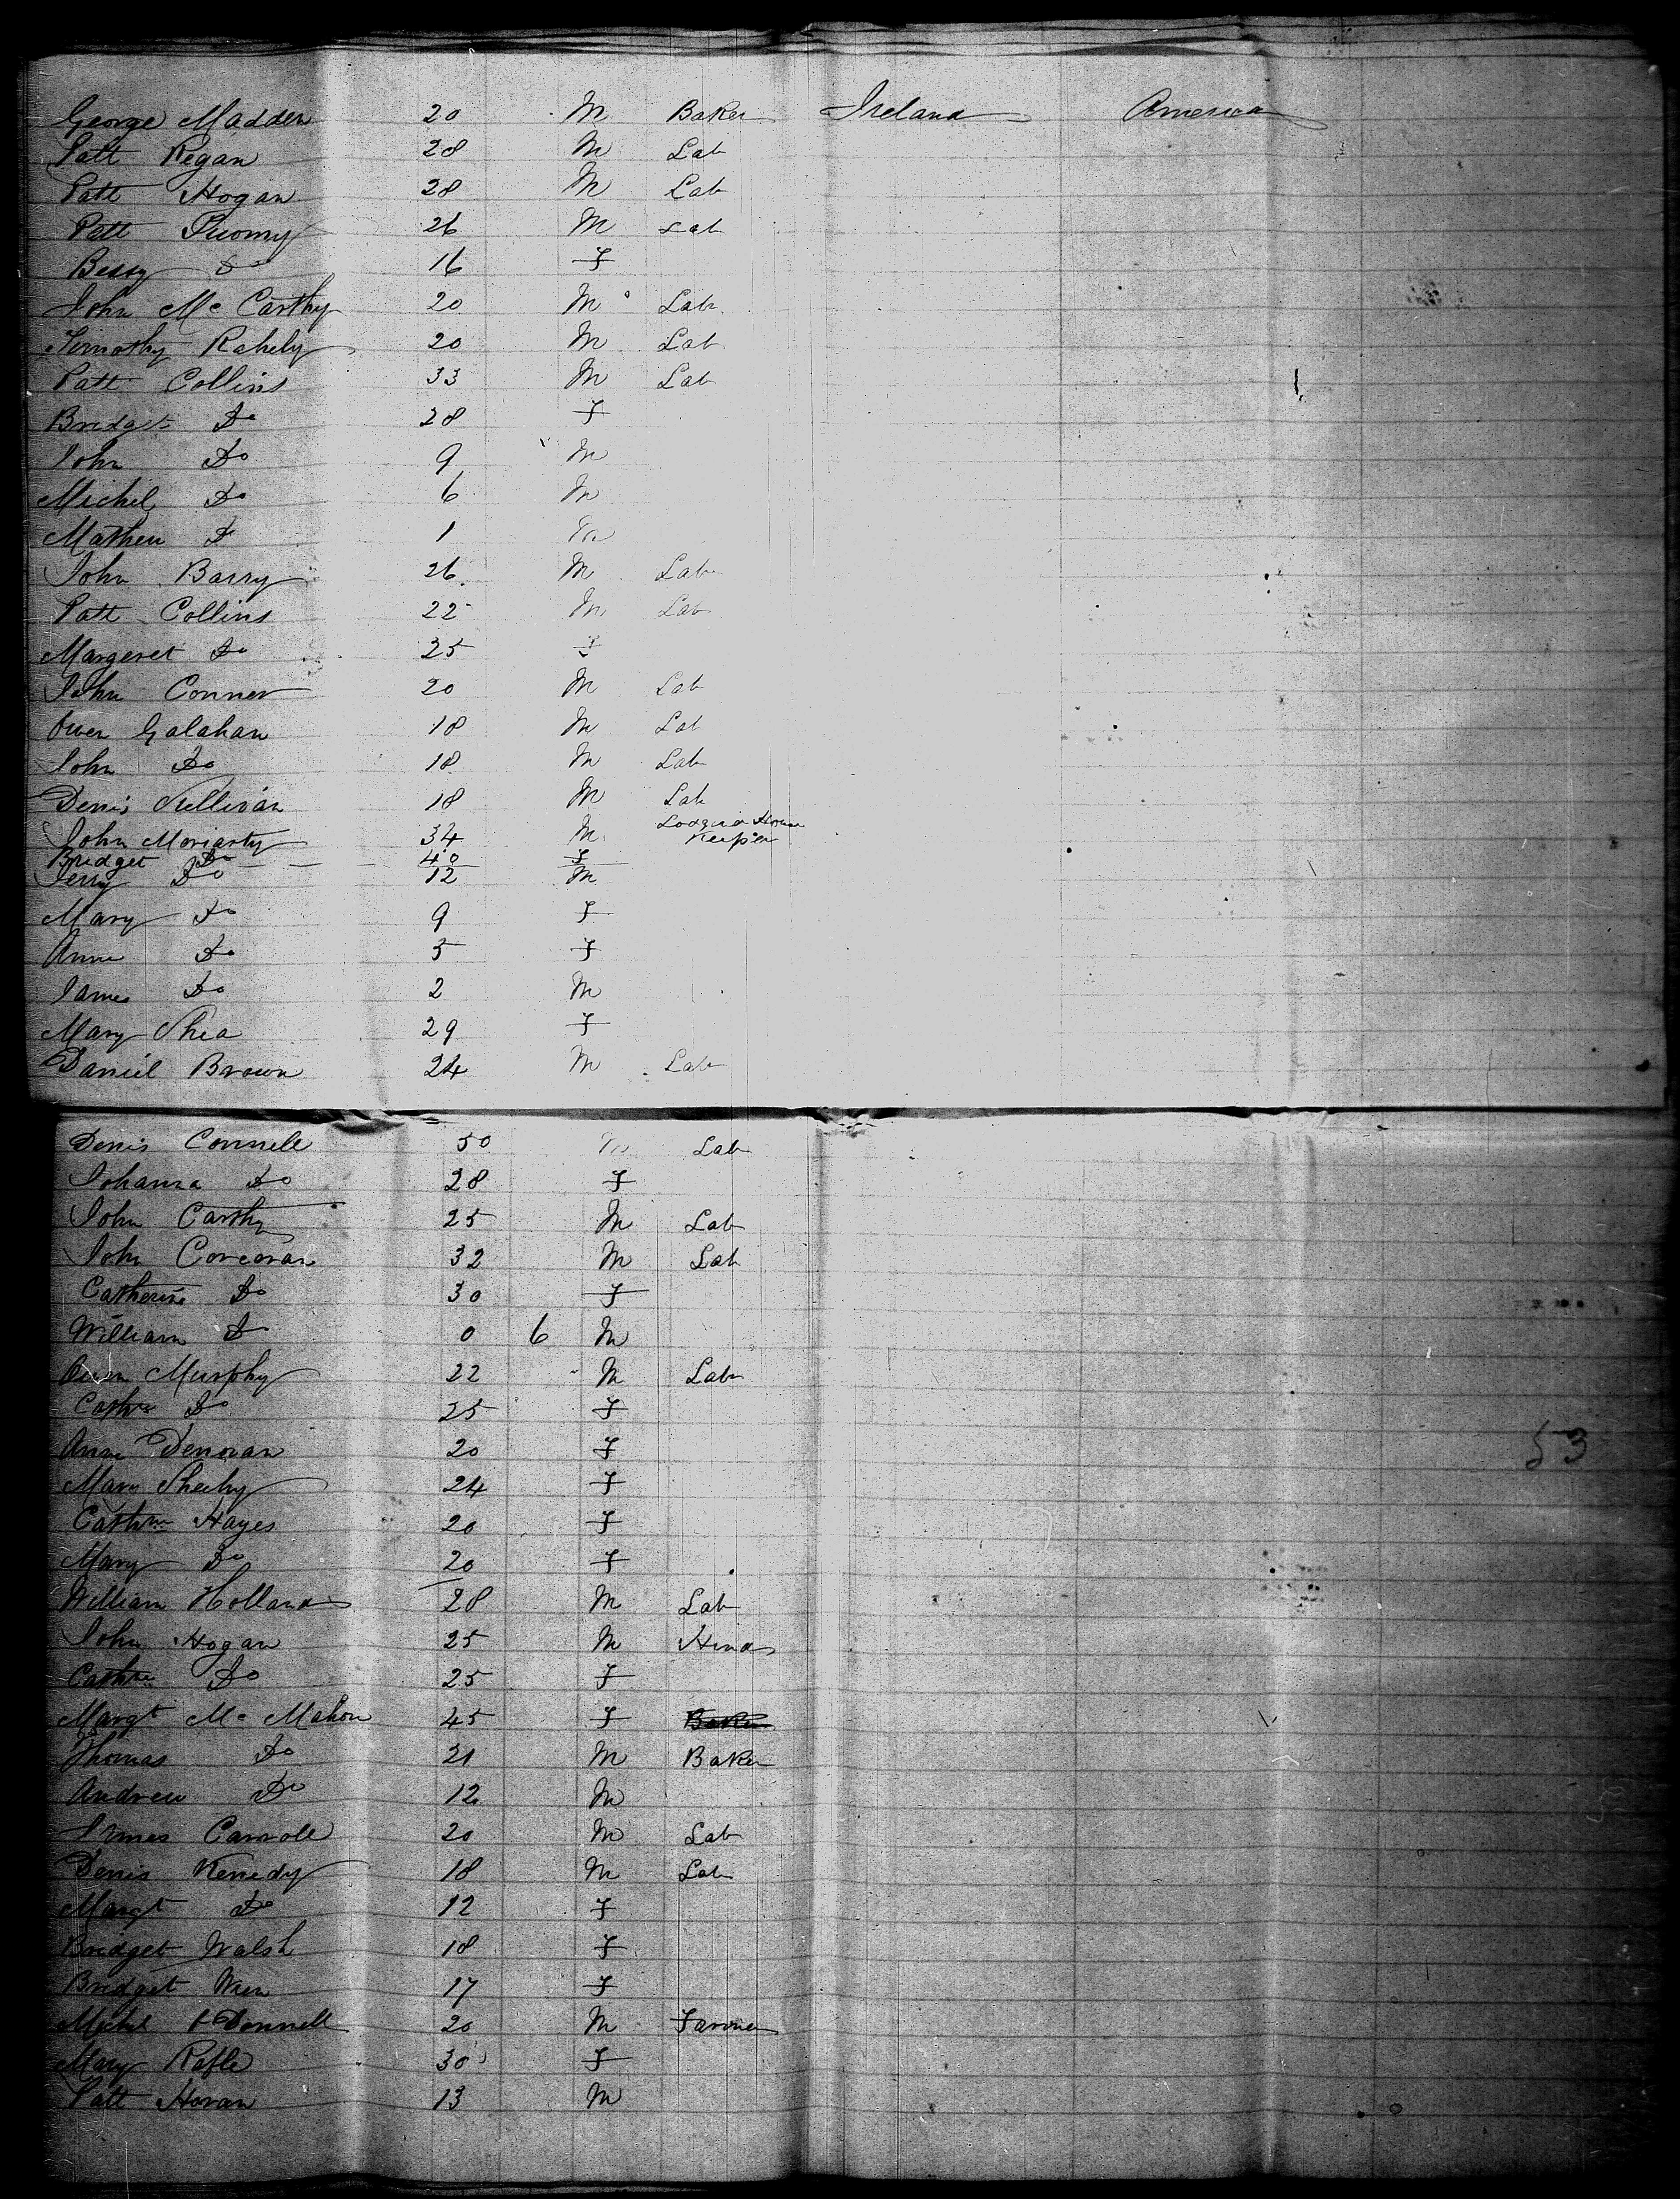 George Madden 20 M Baker Ireland America
Patt Regan 28 M Lab
Patt Hogan 28 M Lab
Patt 26 M Lab
Bessy Do 16 F
John Mc Carthy 20 M Lab
Timothy Rahely 20 M Lab
Patt Collins 33 M Lab
Bridget Do 28 F
John Do 9 M
Michil Do 6 M
Matheu Do 1 M
John Barry 26 M Lab
Patt Collins 22 M Lab
Margeret Do 25 F
John Conner 20 M Lab
Owen Galahan 18 M Lab
John Do 18 M Lab
Denis Sullivan 18 M Lab
John Moriarty 34 M Lodging House Keeper
Bridget Do 40 F
Jerry Do 12 M
Mary Do 9 F
Anne Do 5 F
James Do 2 M
Mary Shea 29 F
Daniel Brown 24 M Lab
Denis Connell 50 M Lab
Johanna Do 28 F
John Carthy 25 M Lab
John Corcoran 32 M Lab
Catherine Do 30 F
William Do 0 6 M
Owen Murphy 22 M Lab
Cathne Do 25 F
Anne Denovan 20 F
Mary Sheehy 24 F
Cathne Hayes 20 F
Mary Do 20 F
William Holland 28 M Lab
John Hogan 25 M Hind
Cathne Do 25 F
Margt Mc Mahon 45 F Baker
Thomas Do 21 M Baker
Andrew Do 12 M
James Carroll 20 M Lab
Denis Kenedy 18 M Lab
Margt Do 12 F
Bridget Walsh 18 F
Bridget 17 F
Michl O Donnell 20 M Farmer
Mary 30 F
Patt Horan 13 M
53